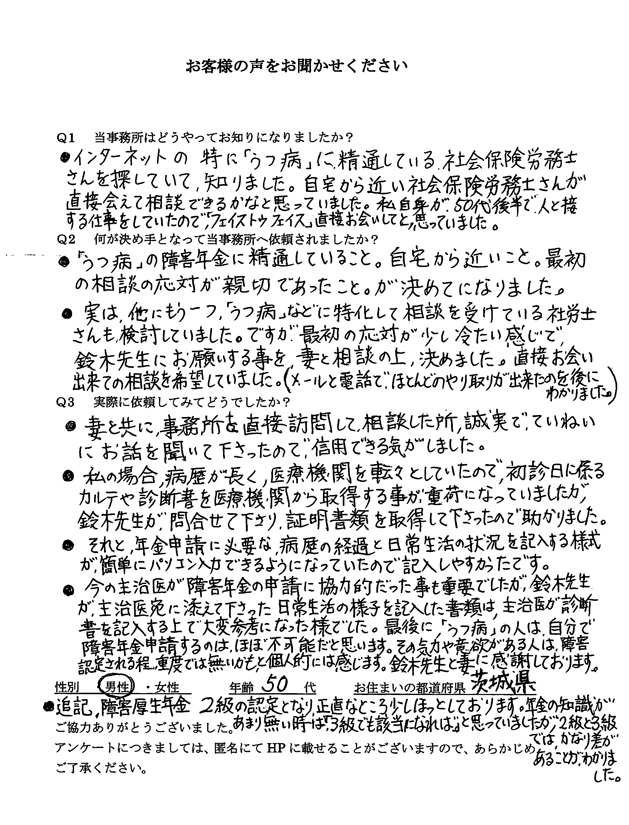 お客様の声をお聞かせください
Q1 当事務所はどうやってお知りになりましたか？
●インターネットの 特に「うつ病」に、精通している、社会保険労務士
さんを探していて、知りました。自宅から近い社会保険労務士さんが
直接会えて相談できるかなと思っていました。私自身が、50代後半で、人と接
する仕事をしていたので、「フェイストゥフェイス」直接お会いしてと、思っていました。
Q2 何が決め手となって当事務所へ依頼されましたか？
●「うつ病」の障害年金に精通していること。自宅から近いこと。最初
の相談の応対が親切であったこと。が決めてになりました。
● 実は、他にもう一つ、「うつ病」などに特化して相談を受けている社労士
さんも、検討していました。ですが、最初の応対が少し冷たい感じで、
鈴木先生にお願いする事を、妻と相談の上、決めました。直接お会い
出来ての相談を希望していました。(メールと電話で、ほとんどのやり取りが出来たのを後に
わかりました。)
Q3 実際に依頼してみてどうでしたか？
● 妻と共に、事務所を直接訪問して、相談した所、誠実で、ていねい
にお話を聞いて下さったので、信用できる気がしました。
● 私の場合、病歴が長く、医療機関を転々としていたので、初診日に係る
カルテや診断書を医療機関から取得する事が、重荷になっていましたが、
鈴木先生が、問合せて下さり、証明書類を取得して下さったので助かりました。
● それと、年金申請に必要な、病歴の経過と日常生活の状況を記入する様式
が、簡単にパソコン入力できるようになっていたので記入しやすかったです。
● 今の主治医が障害年金の申請に協力的だった事も重要でしたが、鈴木先生
が、主治医宛に添えて下さった日常生活の様子を記入した書類は、主治医が診断
書を記入する上で大変参考になった様でした。最後に、「うつ病」の人は、自分で
障害年金申請するのは、ほぼ不可能だと思います。その気力や意欲がある人は、障害
認定される程、重度では無いかもと個人的には感じます。鈴木先生と妻に感謝しております。
性別 男性・女性 年齢 50 代 お住まいの都道府県 茨城県
●追記、障害厚生年金 2級の認定となり、正直なところ少しほっとしております。年金の知識が
ご協力ありがとうございました。あまり無い時は「3級でも該当になれば」と思っていましたが、2級と3級
では、かなり差が
アンケートにつきましては、匿名にてHPに載せることがございますので、あらかじめ
あることが、わかりま
ご了承ください。
した。